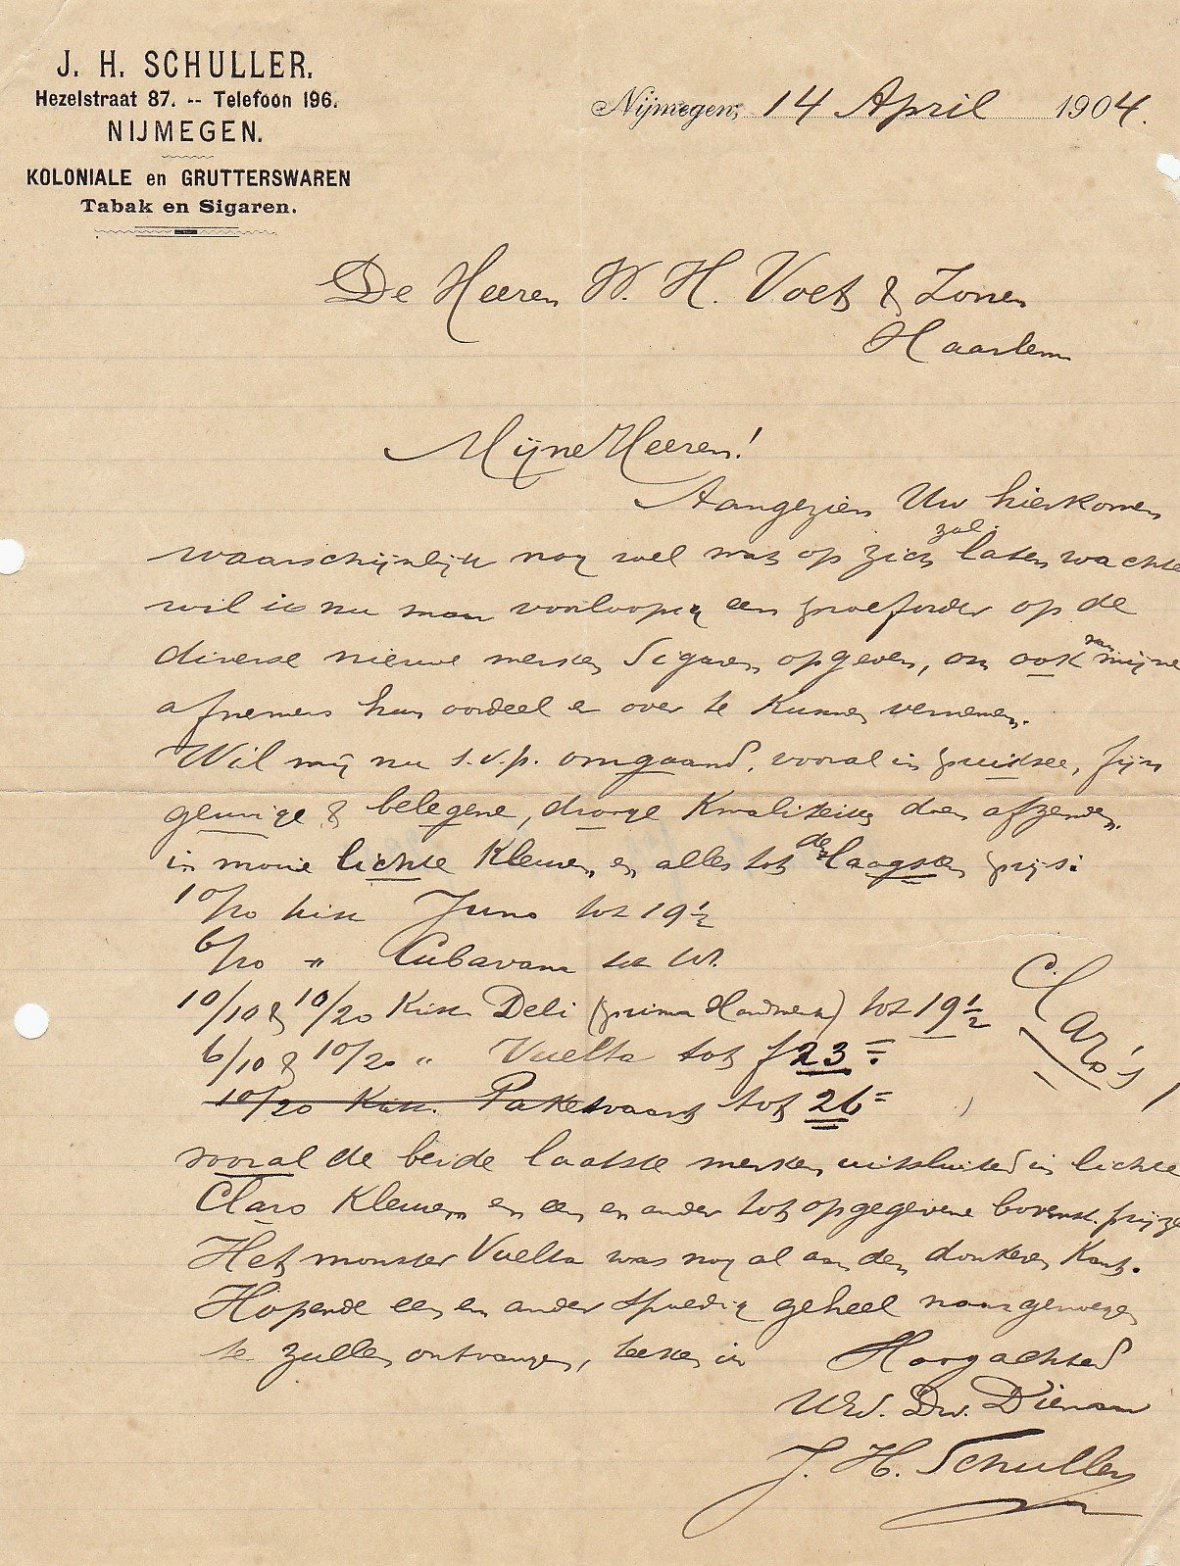 J. H. SCHULLER.
Hezelstraat 87. -- Telefoon 196.
NIJMEGEN.
KOLONIALE en GRUTTERSWAREN
Tabak en Sigaren.
Nijmegen, 14 April 1904.
De Heeren W. H. Voet & Zonen
Haarlem
Mijne Heeren!
Aangezien Uw hierkomen
waarschijnlijk nog wel wat op zich zal laten wachte
wil ik nu maar voorloopig een proeforder op de
diverse nieuwe merken Sigaren opgeven, om ook van mijne
afnemers hun oordeel er over te kunnen vernemen.
Wil mij nu s.v.p. omgaand, vooral in puike, fijn
geurige & belegene, droge Kwaliteiten doen afzenden.
in mooie lichte Kleuren, en alles tot den laagsten prijs:
10/20 kist Juno tot 19 1/2
6/20 " Cubavana
10/10 & 10/20 Kist Deli (prima Handwerk) tot 19 1/2
6/10 & 10/20 " Vuelta tot f 23=
10/20 Kist. Paketvaart tot 26=
Claro's
vooral de beide laatste merken uitsluitend in lichte
Claro Kleuren en een en ander tot opgegevene bovenst. prijze
Het monster Vuelta was nog al aan den donkeren Kant.
Hopende een en ander spoedig geheel naar genoegen
te zullen ontvangen, teeken ik
Hoogachtend
UEd. Dw. Dienaar
J. H. Schuller